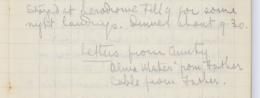 Stayed at aerodrome till 9 for some
night landings. Dinner about 9.30.
Letters from Aunty
"Alma Mater" from Father
Cable from Father.